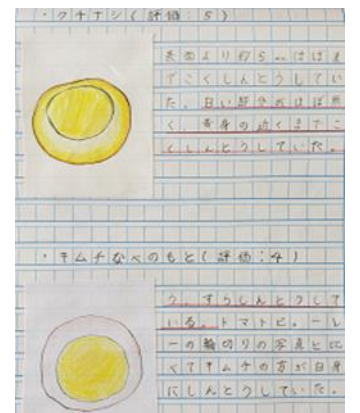 ・クチナシ(評価:5)
表面より約5mmほどま
でこくしんとうしてい
た。白い部分がほぼ無
く、黄身の近くまでこ
くしんとうしていた。
・キムチなべのもと(評価:4)
う、すうしんとうして
いる。トマトピューレ
ーの輪切りの写真とに
くてキムチの方が白身
にしんとうしていた。